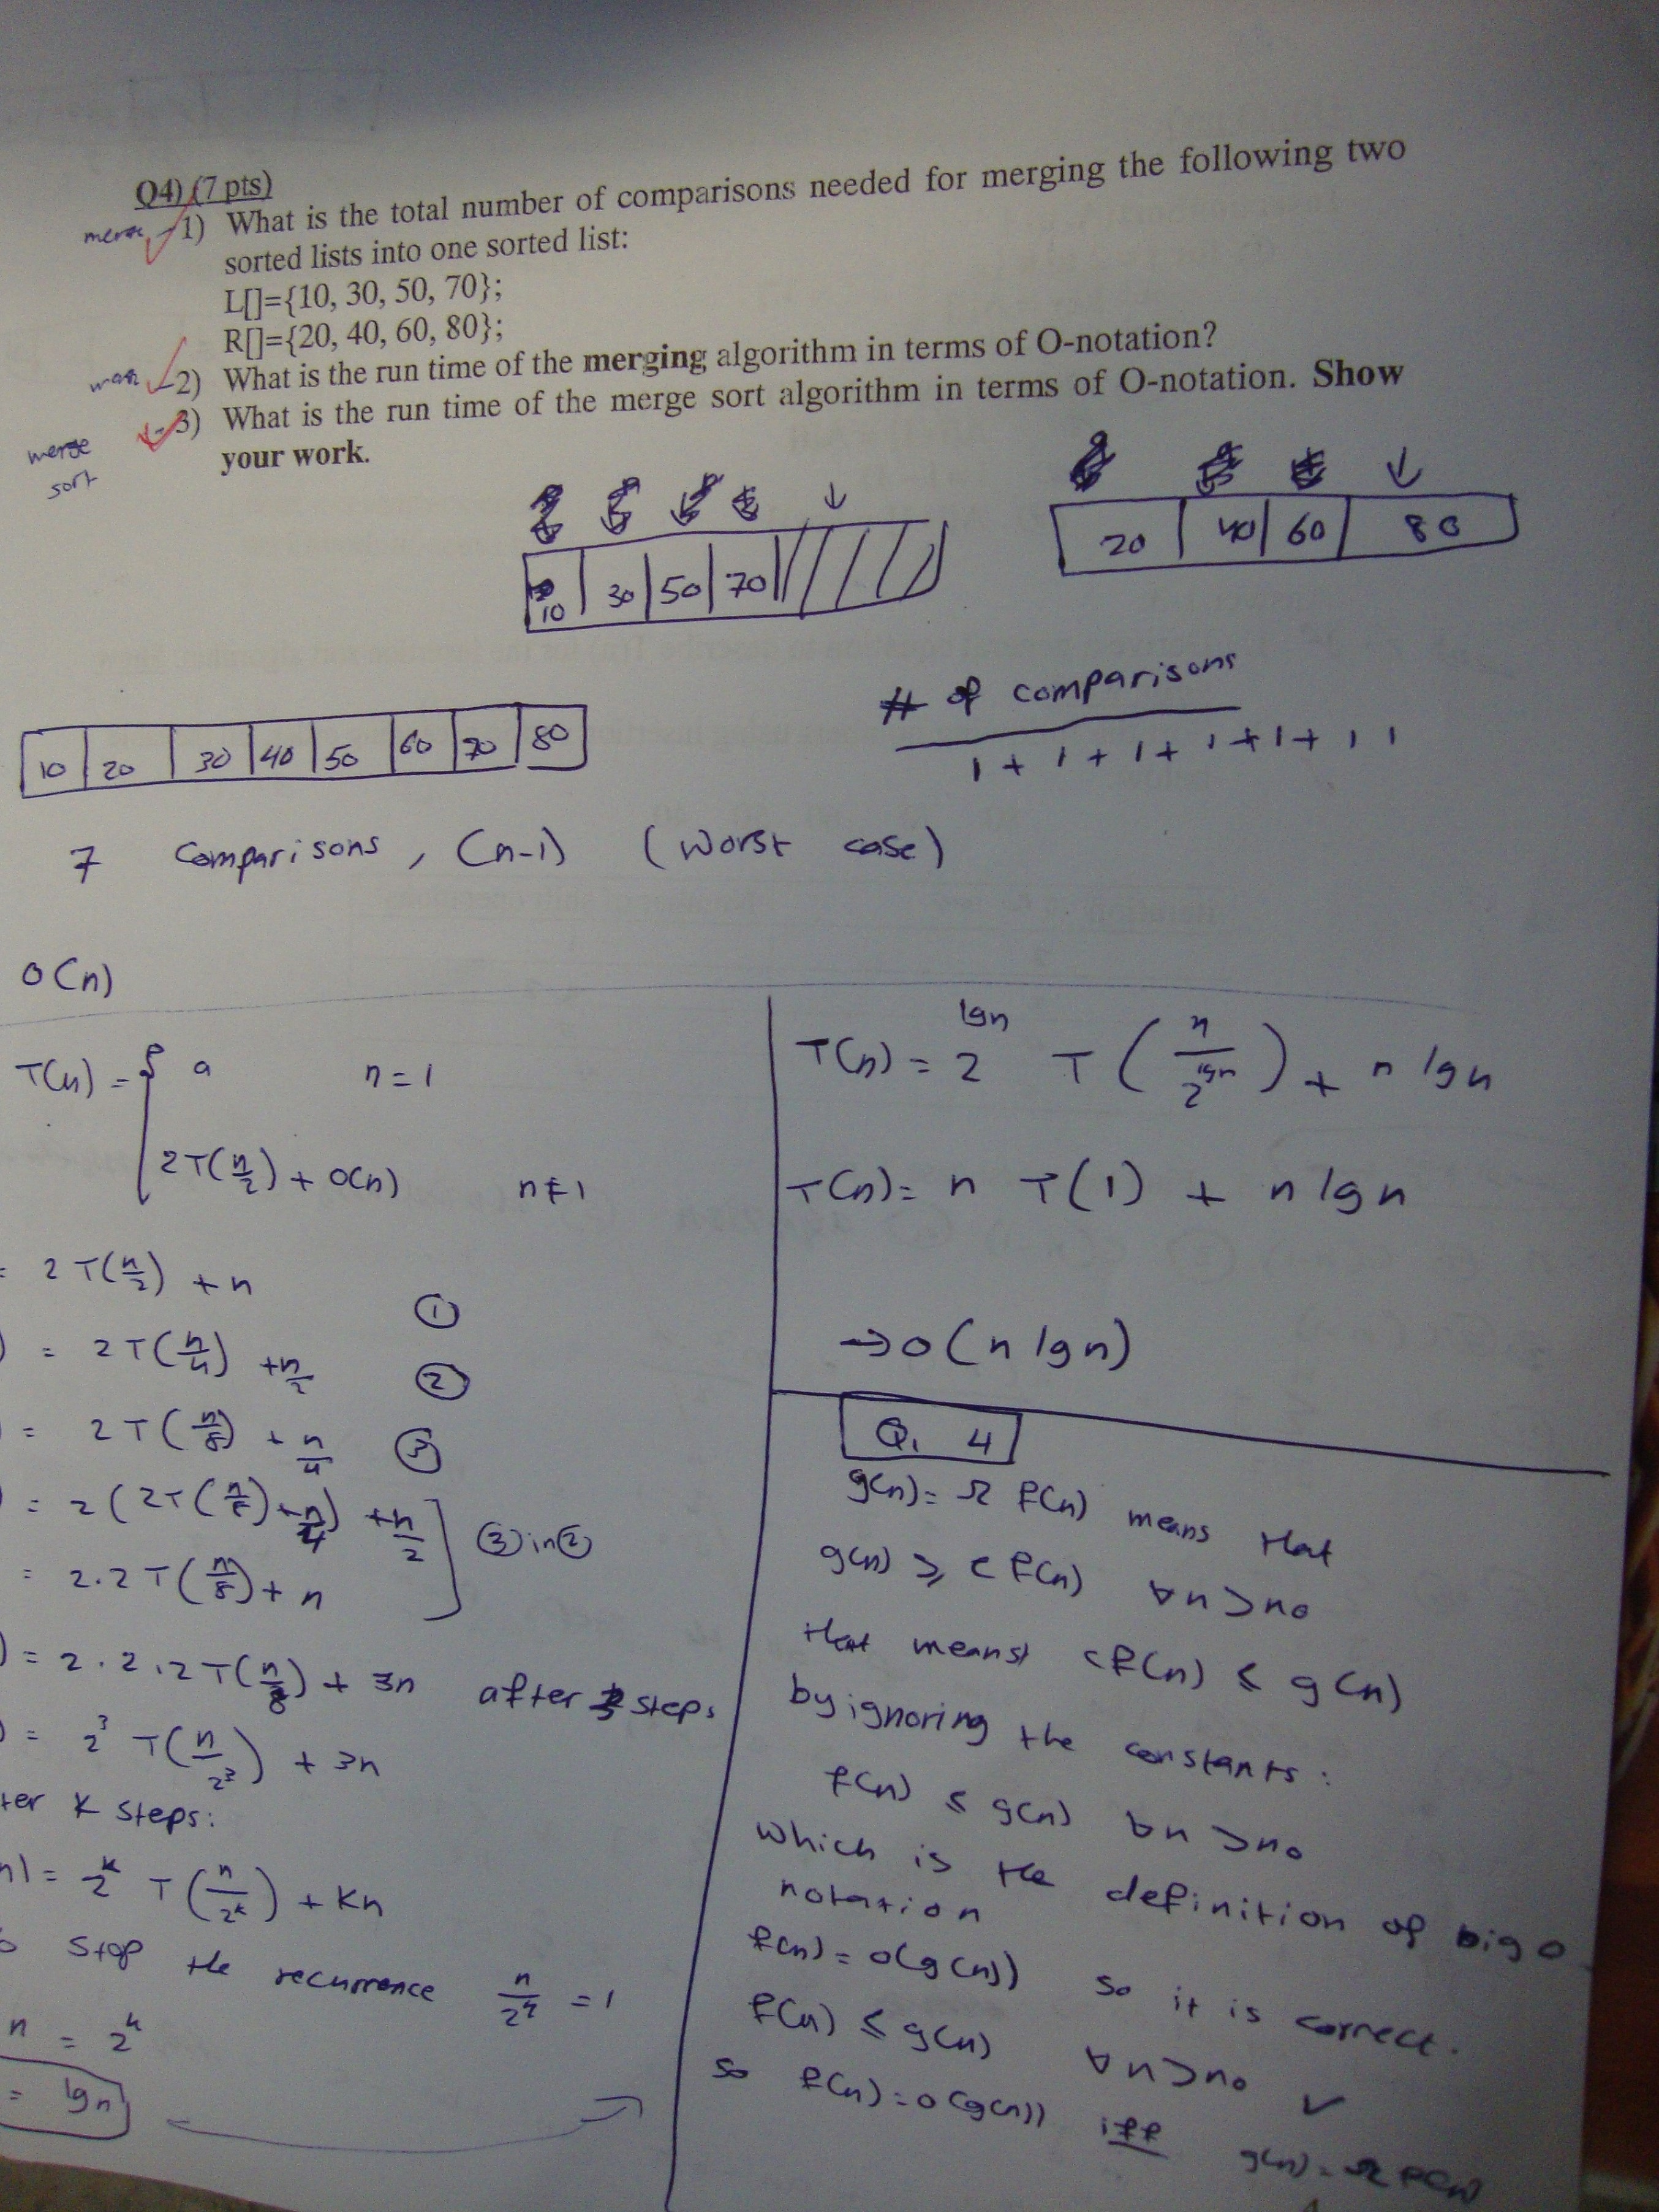 Q4) (7 pts)
merge 1) What is the total number of comparisons needed for merging the following two
sorted lists into one sorted list:
L[]={10, 30, 50, 70};
R[]={20, 40, 60, 80};
2) What is the run time of the merging algorithm in terms of O-notation?
merge sort 3) What is the run time of the merge sort algorithm in terms of O-notation. Show
your work.
10 30 50 70
20 40 60 80
# of comparisons
1 + 1 + 1 + 1 + 1 + 1 1
10 20 30 40 50 60 70 80
7 comparisons, (n-1) (worst case)
O(n)
T(n) = { a n = 1
2T(n/2) + O(n) n ≠ 1
= 2T(n/2) + n ①
) = 2T(n/4) + n/2 ②
= 2T(n/8) + n/4 ③
) = 2(2T(n/8) + n/4) + n/2 ] ③ in ②
= 2.2T(n/8) + n
) = 2.2.2T(n/8) + 3n after 3 steps
) = 2³ T(n/2³) + 3n
ter k steps:
n) = 2^k T(n/2^k) + kn
o stop the recurrence n/2^k = 1
n = 2^k
= lgn
T(n) = 2^lgn T(n/2^lgn) + n lgn
T(n) = n T(1) + n lgn
→ O(n lgn)
Q. 4
g(n) = Ω f(n) means that
g(n) ≥ c f(n) ∀n>n₀
that means c f(n) ≤ g(n)
by ignoring the constants:
f(n) ≤ g(n) ∀n>n₀
which is the definition of big O
notation
f(n) = O(g(n)) so it is correct.
f(n) ≤ g(n) ∀n>n₀ ✓
so f(n) = O(g(n)) iff g(n) = Ω f(n)